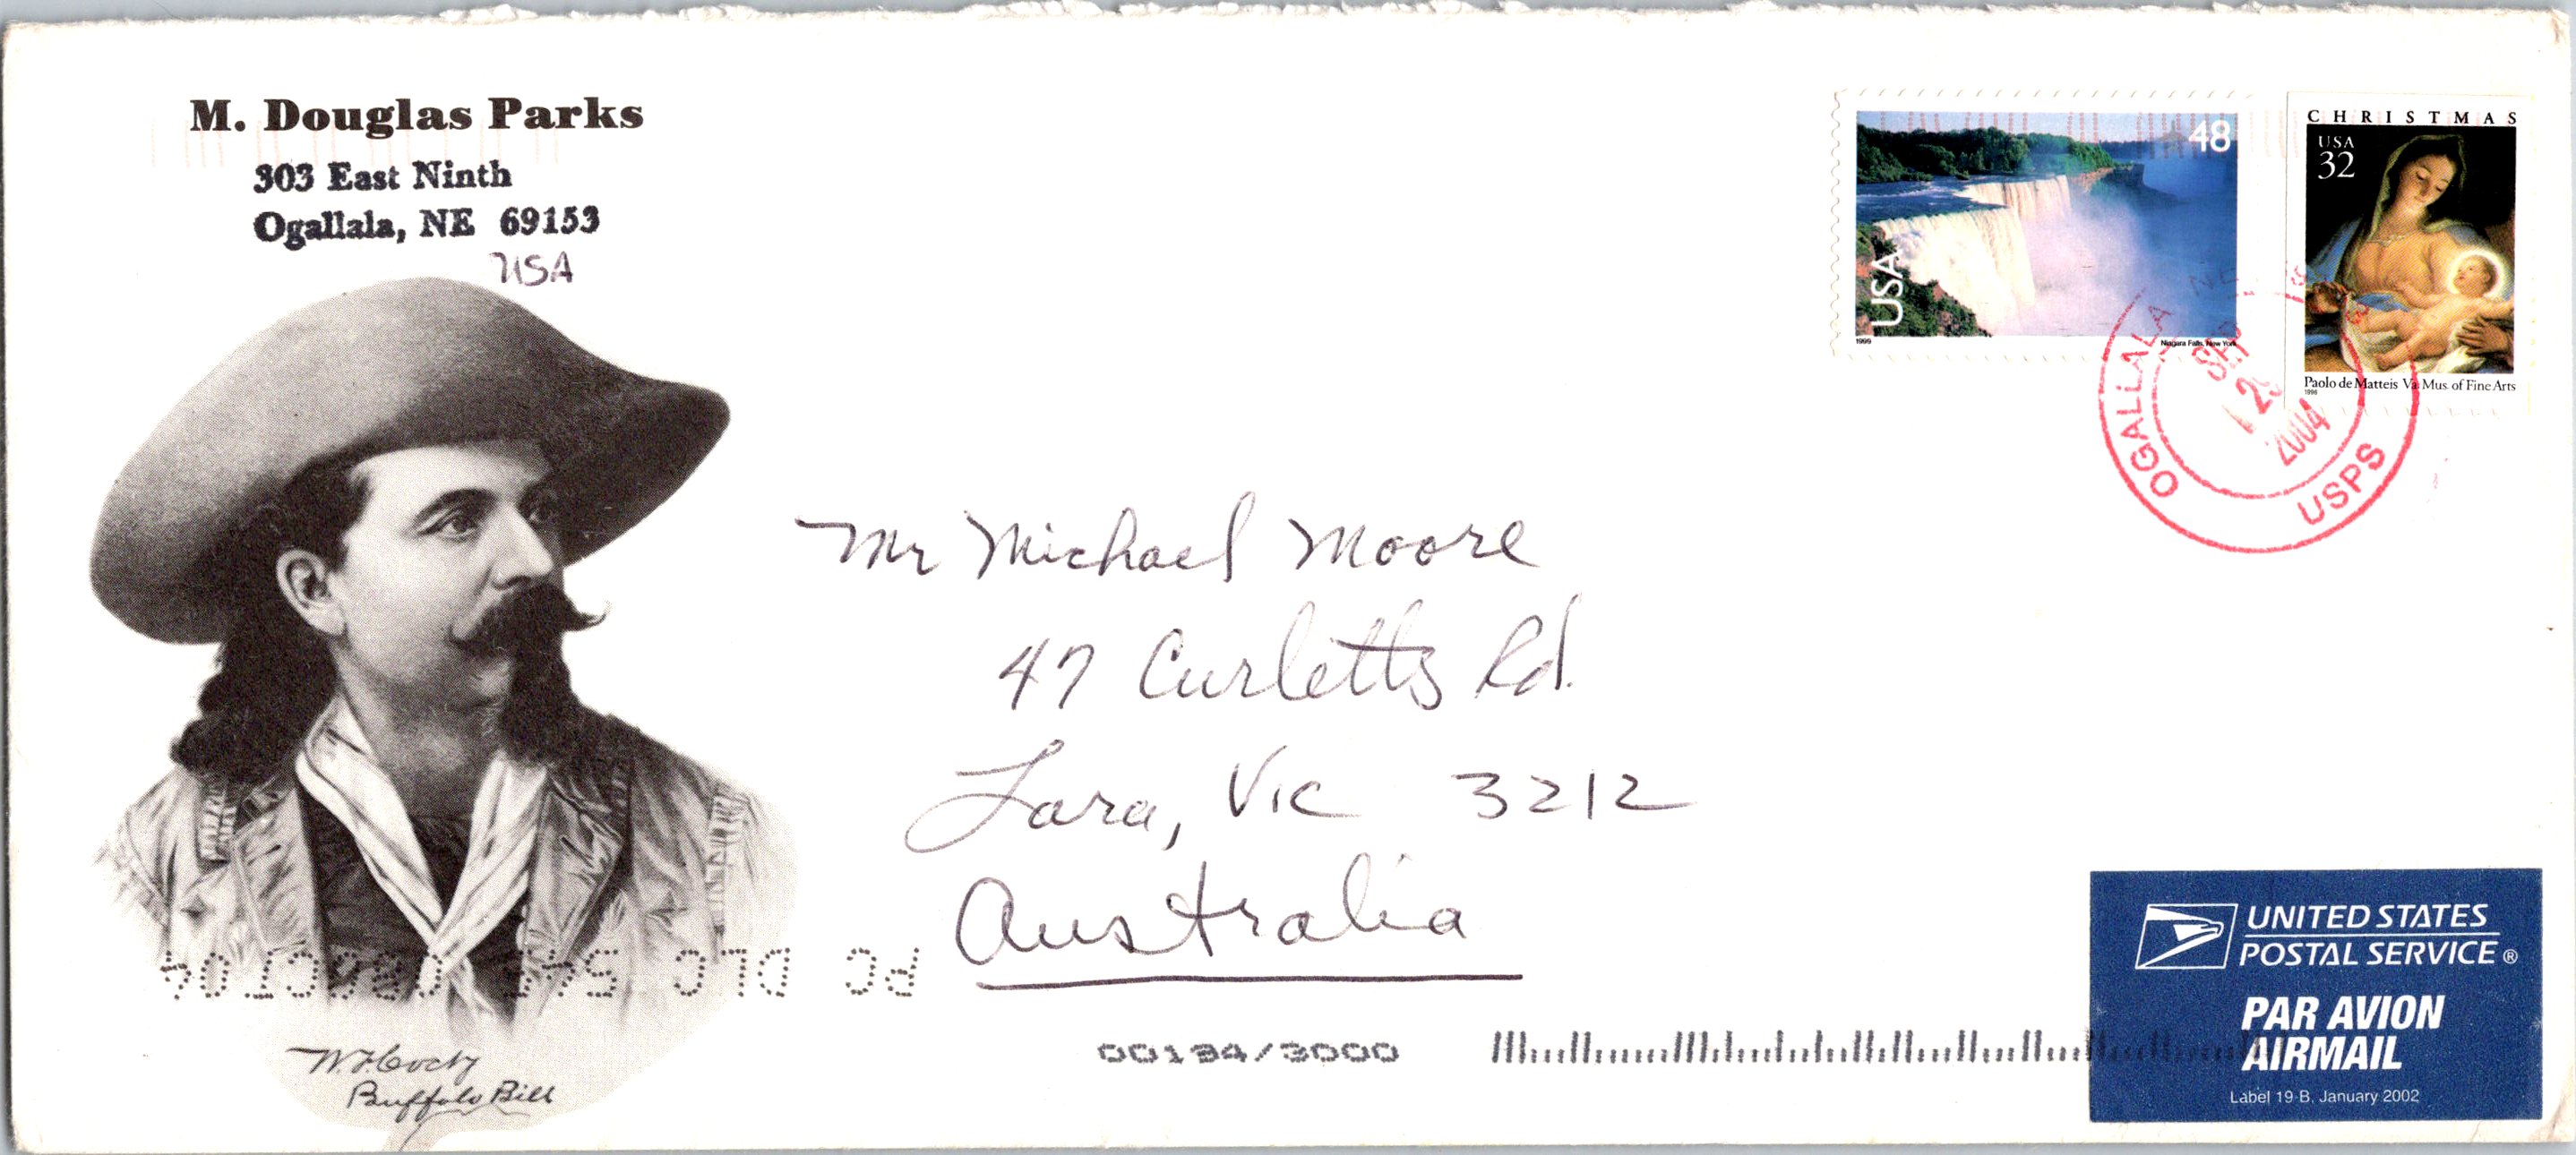 M. Douglas Parks
303 East Ninth
Ogallala, NE 69153
USA
48
USA
1999
Niagara Falls, New York
CHRISTMAS
USA
32
Paolo de Matteis Va. Mus. of Fine Arts
1996
OGALLALA NE
SEP
2004
USPS
Mr Michael Moore
47 Curletts Rd.
Lara, Vic 3212
Australia
PC DLC
00134/3000
W.F. Cody
Buffalo Bill
UNITED STATES
POSTAL SERVICE®
PAR AVION
AIRMAIL
Label 19-B, January 2002